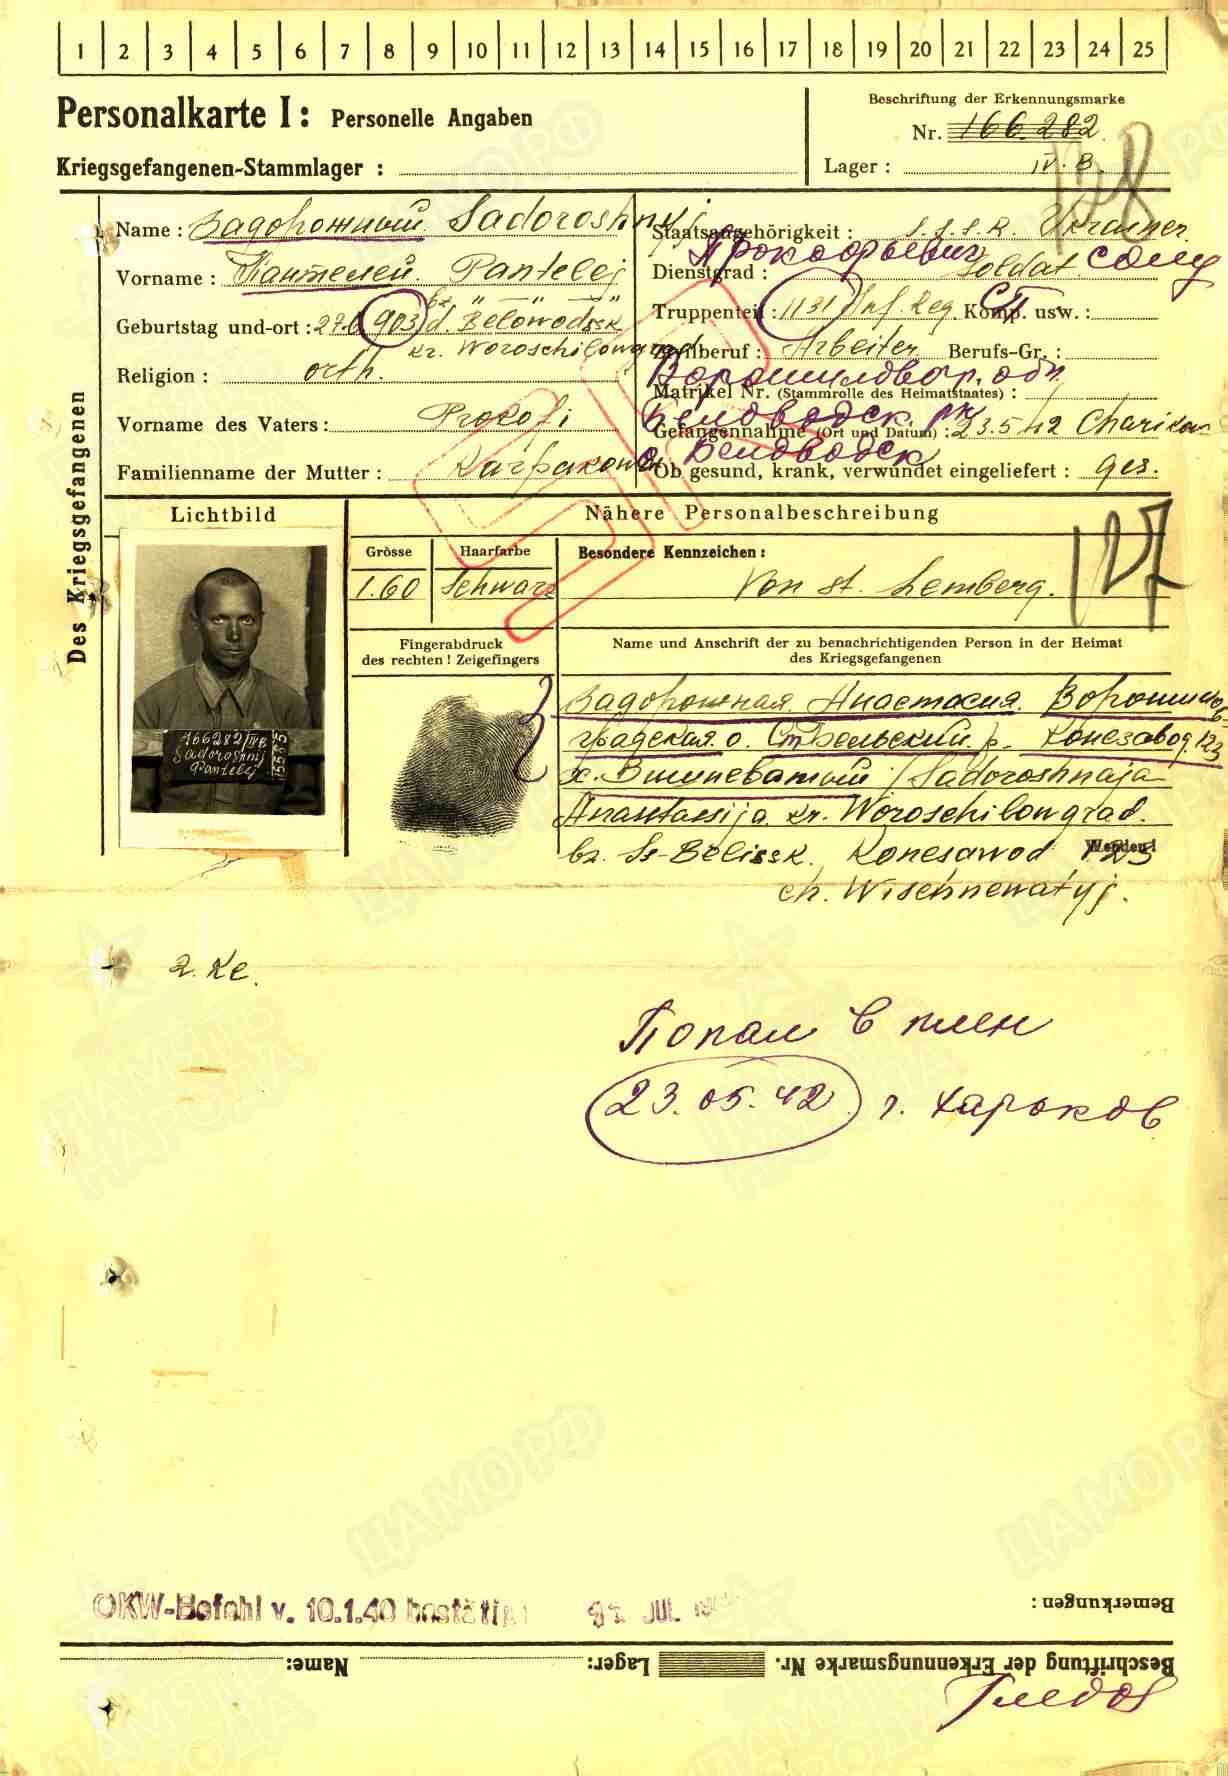 1 2 3 4 5 6 7 8 9 10 11 12 13 14 15 16 17 18 19 20 21 22 23 24 25
Personalkarte I: Personelle Angaben
Kriegsgefangenen-Stammlager :
Beschriftung der Erkennungsmarke
Nr. 166.282
Lager : IV. B.
128
Des Kriegsgefangenen
Name : Задорожный Sadoroshnyj
Vorname : Пантелей. Pantelej
bz. " — " — "
Geburtstag und -ort : 27.6.903 d. Belowodssk
kr. Woroschilowgrad.
Religion : orth.
Vorname des Vaters : Prokofi
Familienname der Mutter :
Staatsangehörigkeit : S.S.S.R. Ukrainer.
Прокофьевич
Dienstgrad : Soldat солд
Truppenteil : 1131 Inf. Reg. Komp. usw. :
Zivilberuf : Arbeiter Berufs-Gr. :
Ворошиловгр. обл
Matrikel Nr. (Stammrolle des Heimatstaates) :
Беловодск рн
Gefangennahme (Ort und Datum) : 23.5.42 Charikow
с Беловодск
Ob gesund, krank, verwundet eingeliefert : ges.
Lichtbild
166282/IVB
Sadoroshnij
Pantelej
Nähere Personalbeschreibung
Grösse Haarfarbe Besondere Kennzeichen :
1.60 Schwarz Von St. Lemberg.
127
Fingerabdruck
des rechten ! Zeigefingers
Name und Anschrift der zu benachrichtigenden Person in der Heimat
des Kriegsgefangenen
Задорожная Анастасия Ворошилов-
градская о. Ст Бельский р. Конезавод 123
х. Вишневатый / Sadoroshnaja
Anastassija kr. Woroschilowgrad.
bz. St-Belissk. Konesawod 123
Wenden!
ch. Wischnewatyj.
2. Ke.
Попал в плен
23.05.42 г. Харьков
OKW-Befehl v. 10.1.40 bestätigt JUL
Bemerkungen :
Beschriftung der Erkennungsmarke Nr. Lager: Name:
ЦАМО РФ
ПАМЯТЬ НАРОДА